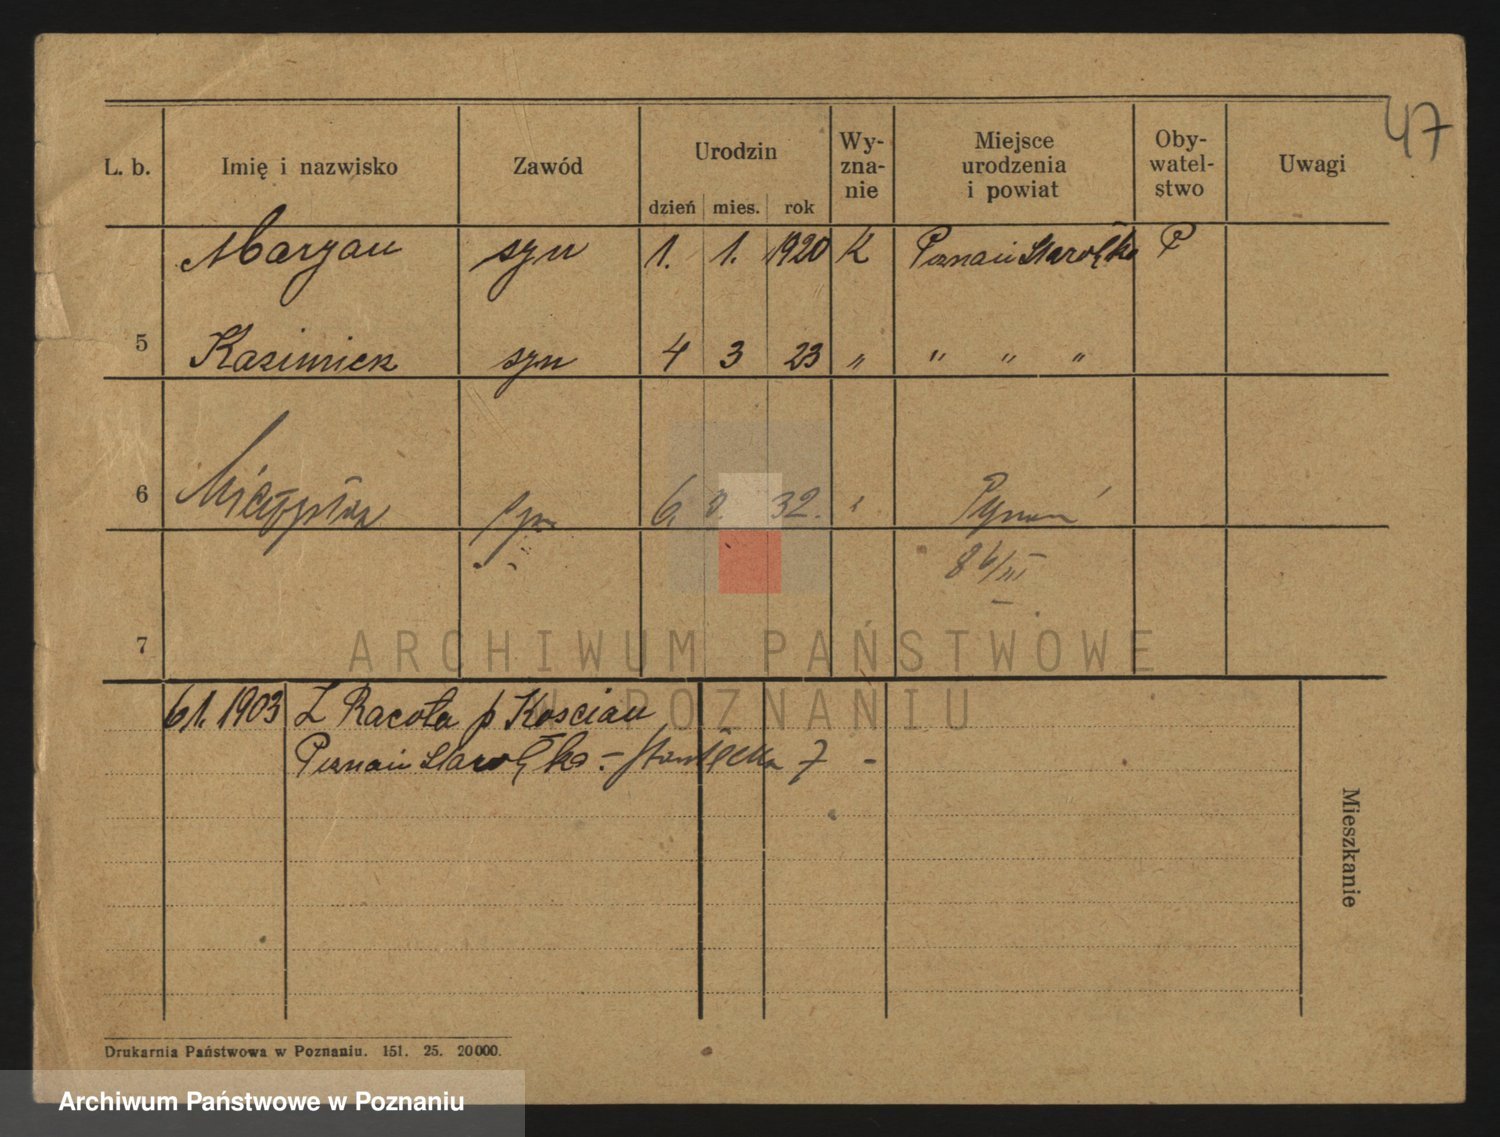 47
L. b. Imię i nazwisko Zawód Urodzin dzień mies. rok Wy-zna-nie Miejsce urodzenia i powiat Oby-watel-stwo Uwagi
Maryan syn 1. 1. 1920 K Poznań Starołęka P
5 Kazimierz syn 4 3 23 " " " "
6 Mieczysław syn 6. 32.
7
ARCHIWUM PAŃSTWOWE
W POZNANIU
6 1. 1903 Z Racota p Kościan
Poznań Starołęka - 7 -
Mieszkanie
Drukarnia Państwowa w Poznaniu. 151. 25. 20000.
Archiwum Państwowe w Poznaniu